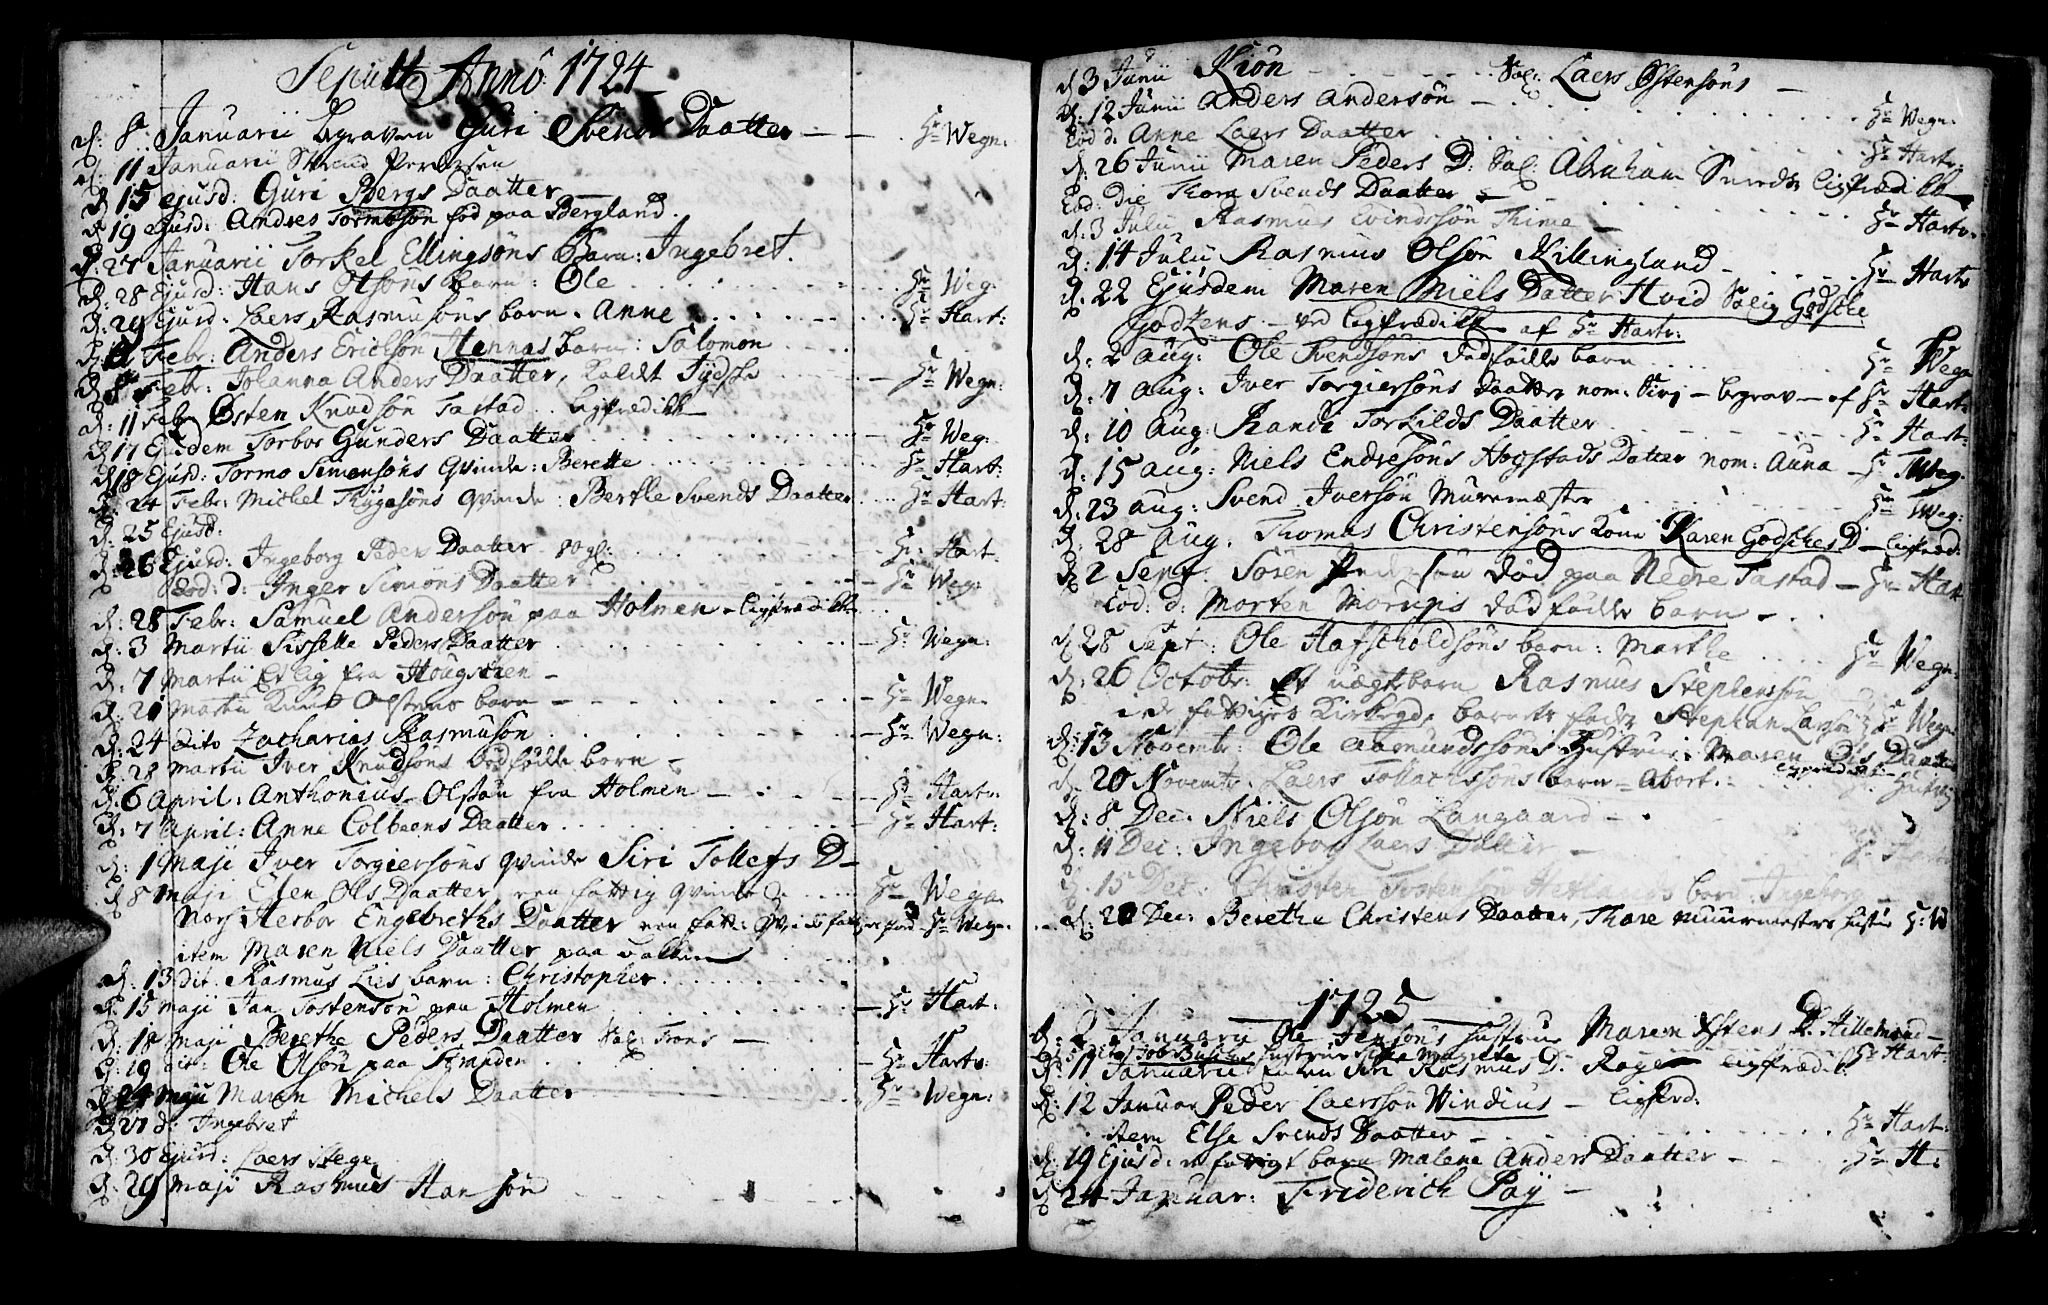 Sepult Anno 1724
d: 8 Januarii begraven Guri Svends Daatter — — Hr Wegn:
d: 11 Januarii Pedersen
d: 15 ejusd: Guri Bergs Daatter —
d: 19 ejusd: Andres Tormosøn fød paa Bergland.
d: 27 Januarii Torkel Ellingsøns Barn: Ingebret.
d: 28 Ejusd: Hans Olsøns barn: Ole Hr Weg:
d: 29 Ejusd: Laers Rasmusøns barn. Anne Hr Hart:
Febr: Anders Ericksøn Hennas barn: Salomon
d: Febr: Johanna Anders Daatter, kaldt Tydske — Hr Wegn:
d: 11 Febr Østen Knudsøn Tastad
d: 17 Ejusdem Torbor Gunders Daatter Hr Weg:
d: 18 Ejusd: Tormo Simonsøns qvinde: Berette Hr Hart:
d: 24 Febr: Michel Thygesøns qvinde: Berthe Svends Daatter Hr Hart:
d: 25 Ejusd:
d: 26 Ejusd: Ingeborg Peders Daatter Hr Hart
Eod: d: Inger Simons Daatter Hr Weg:
d: 28 Febr: Samuel Andersøn paa Holmen
d: 3 Martii Sisselle Peders Daatter — Hr Wegn:
d: 7 Martii Et lig fra —
d: 21 Martii Knud barn — Hr Wegn.
d: 24 dito Zacharias Rasmusøn — Hr Wegn:
d: 28 Martii Iver Knudsøns dødfødde barn —
d: 6 April: Anthonius Olsøn fra Holmen — Hr Hartv:
d: 7 April: Anne Colbens Daatter Hr Hart:
d: 1 Maji Iver Torgiersøns qvinde Siri Tollefs D —
d: 8 Maji Elen Ols Daatter, en fattig qvinde Hr Wegn.
Nors Herbor Engebreths Daatter en fatt: Hr Wegn.
item Maren Niels Daatter paa
d: 13 dit. Rasmus Lies barn: Christopher
d: 15 Maji Jan Tostensøn paa Holmen — Hr Hart:
d: 18 Maji Berethe Peders Daatter —
d: 19 dit: Ole Olsøn paa — Hr Hartv:
d: 24 Maji Maren Michels Daatter Hr Wegn:
d: 27 d: Ingebret
d: 30 Ejusd: Laers Stege
d: 29 Maji Rasmus Hansøn
d: 3 Junii Kión Sal: Laers Østensøns —
d: 12 Junii Anders Andersøn — Hr Wegn:
Eod d. Anne Laers Daatter Hr Hartv:
d: 26 Junii Maren Peders D: Sal: Abraham
Eod: die Thora Svends Daatter — Hr Hartv:
d: 3 Julii Rasmus Evindsøn Thime —
d: 14 Julii Rasmus Olsøn Killingland — Hr Hartv
d: 22 Ejusdem Maren Niels Datter Hvid Salig Godsche
Godzens — ved Ligprædik af Hr Hartv:
d: 2 Aug: Ole Svendsøns dødfødde barn Hr Wegn
d: 7 Aug: Iver Torgiersøns Daatter nom: Siri — begrav — af Hr Hart:
d: 10 Aug: Randi Torkilds Daatter Hr Hart:
d: 15 Aug: Niels Endresøns Hogstads Datter nom: Anna — Hr Weg.
d: 23 Aug: Svend Iversøn Muremester Hr Weg:
d: 28 Aug. Thomas Christensøns Kone Karen Godsches D —
d: 2 Sept. Søren Pedersøn død paa Nedre Tastad — Hr Hart
Eod: d: Morten dødfødde barn —
d: 28 Sept: Ole barn: Marthe Hr Wegn:
d: 26 Octobr: Et uægte barn Rasmus Stephensøn
fattiges Kirkegd, barnets fader Stephan Larsøn Hr Wegn
d: 13 Novembr: Ole Aamundssøns Hustrue: Maren Ols Daatter
d: 20 Novembr: Laers barn = Abort: Hr
d: 8 Dec: Niels Olsøn Langaard —
d: 11 Dec: Ingebor Laers Datter — Hr Hartv
d: 15 Dec: barn: Ingeborg —
d: 20 Dec: Berethe Christens Daatter, Thore muurmesters H: W
1725
d: 2 Januarii Ole Jensøns Hustrue Maren Østens D. Hillemand —
Hustrue Hr Hart:
d: 11 Januarii Siri Rasmus D. Rage
d: 12 Januar Peder Laerssøn Windius —
item Else Svends Daatter — Hr Hart:
d: 19 Ejusd: fattigt barn Malene Anders Daatter — Hr H:
d: 24 Januar: Friderich Poÿ —